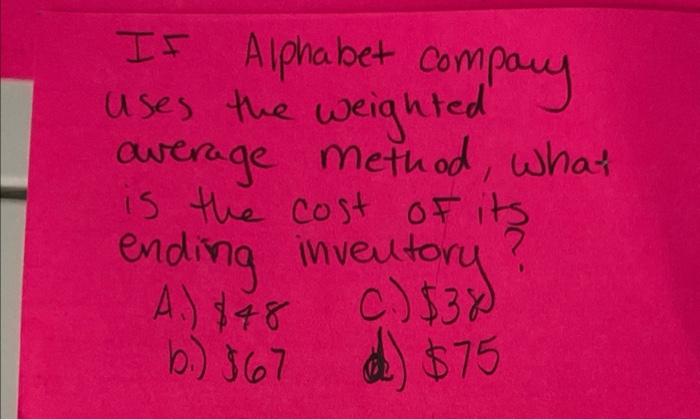 If Alphabet company
uses the weighted
average method, what
is the cost of its
ending inventory?
A.) $48 C.) $38
b.) $67 d) $75